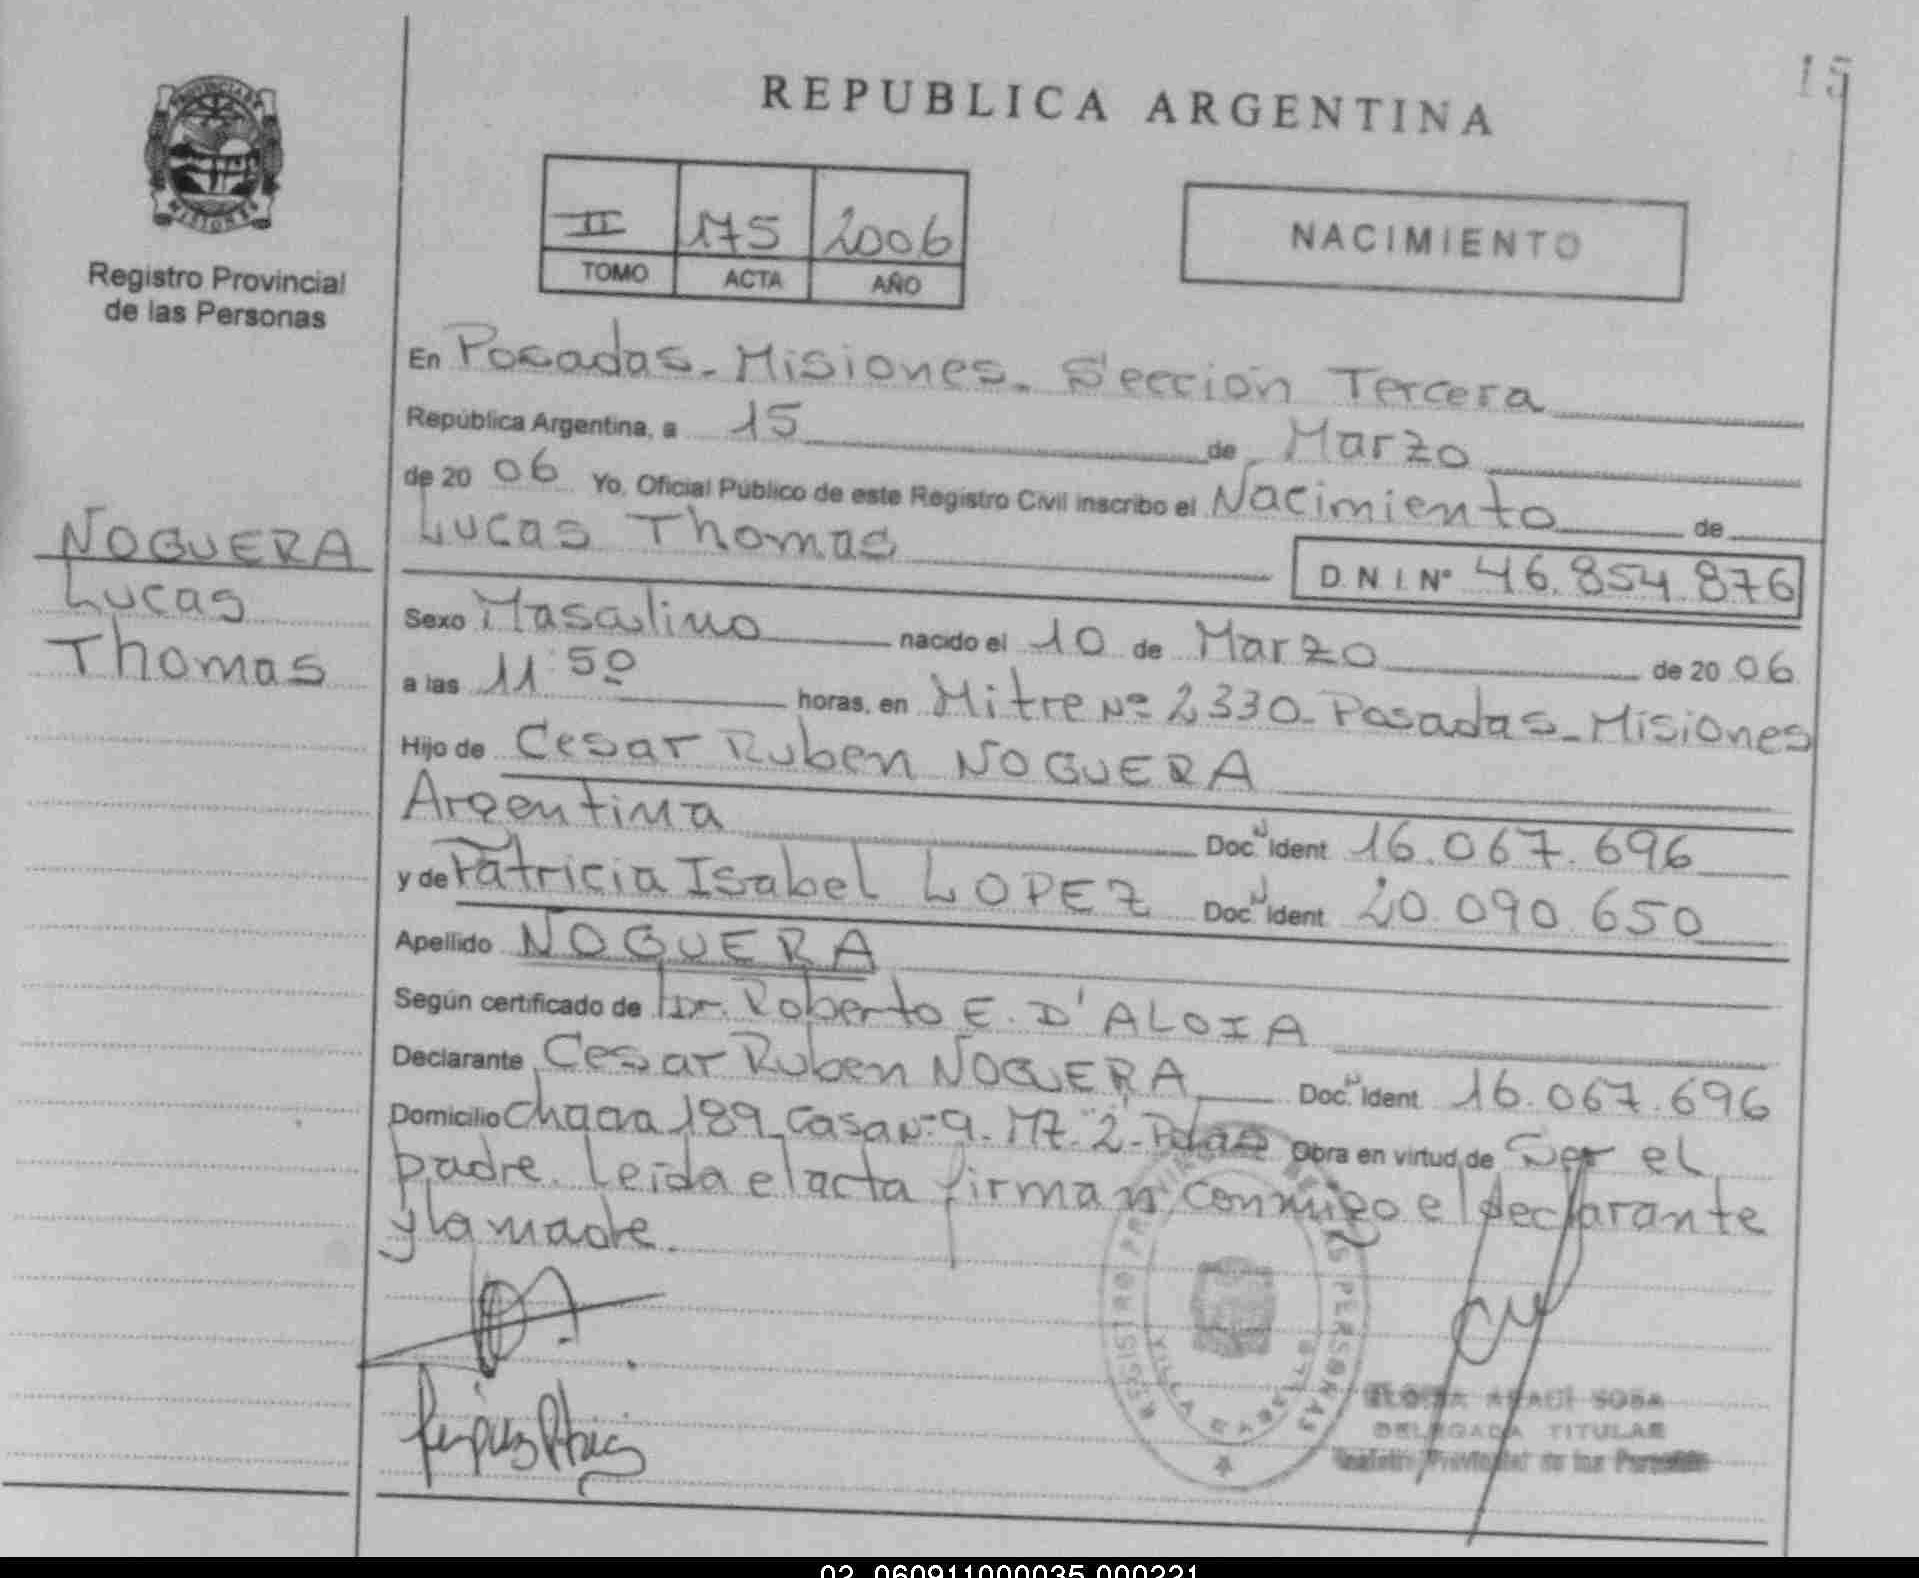 15
REPUBLICA ARGENTINA
PROVINCIA DE
MISIONES
Registro Provincial
de las Personas
II 175 2006
TOMO ACTA AÑO
NACIMIENTO
NOGUERA
Lucas
Thomas
En Posadas - Misiones - Sección Tercera
República Argentina, a 15 de Marzo
de 20 06 Yo, Oficial Público de este Registro Civil inscribo el Nacimiento de
Lucas Thomas
D.N.I. Nº 46.854.876
Sexo Masculino nacido el 10 de Marzo de 20 06
a las 11:50 horas, en Mitre Nº 2330 - Posadas - Misiones
Hijo de Cesar Ruben NOGUERA
Argentina Doc. N Ident 16.067.696
y de Patricia Isabel LOPEZ Doc. N Ident 20.090.650
Apellido NOGUERA
Según certificado de Dr. Roberto E. D'ALOIA
Declarante Cesar Ruben NOGUERA Doc. N Ident 16.067.696
Domicilio Chacra 189 Casa Nº 9 - Mz. 2 - Pdas Obra en virtud de Ser el
padre. Leida el acta firman conmigo el declarante
y la madre.
REGISTRO PROVINCIAL DE LAS PERSONAS
VILLA
SOSA
DELEGADA TITULAR
Registro Provincial de las Personas
02 060911000035 000221